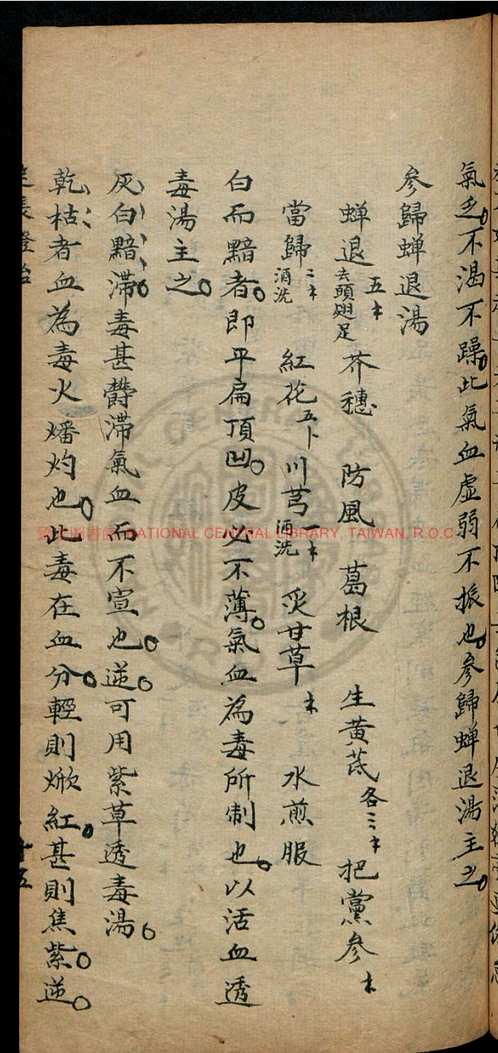 氣乏。不渴不躁。此氣血虛弱不振也。參歸蟬退湯主之。
參歸蟬退湯
蟬退去頭翅足五木 芥穗 防風 葛根 生黃芪各三木 把黨參木
當歸三木酒洗 紅花五卜 川芎一木酒洗 炙甘草木 水煎服
白而黯者。即平扁頂凹。皮必不薄。氣血為毒所制也。以活血透
毒湯主之。
灰白黯滯。毒甚欝滯氣血而不宣也。逆。可用紫草透毒湯。
乾枯者血為毒火燔灼也。此毒在血分。輕則焮紅。甚則焦紫。逆。
NATIONAL CENTRAL LIBRARY, TAIWAN, R.O.C